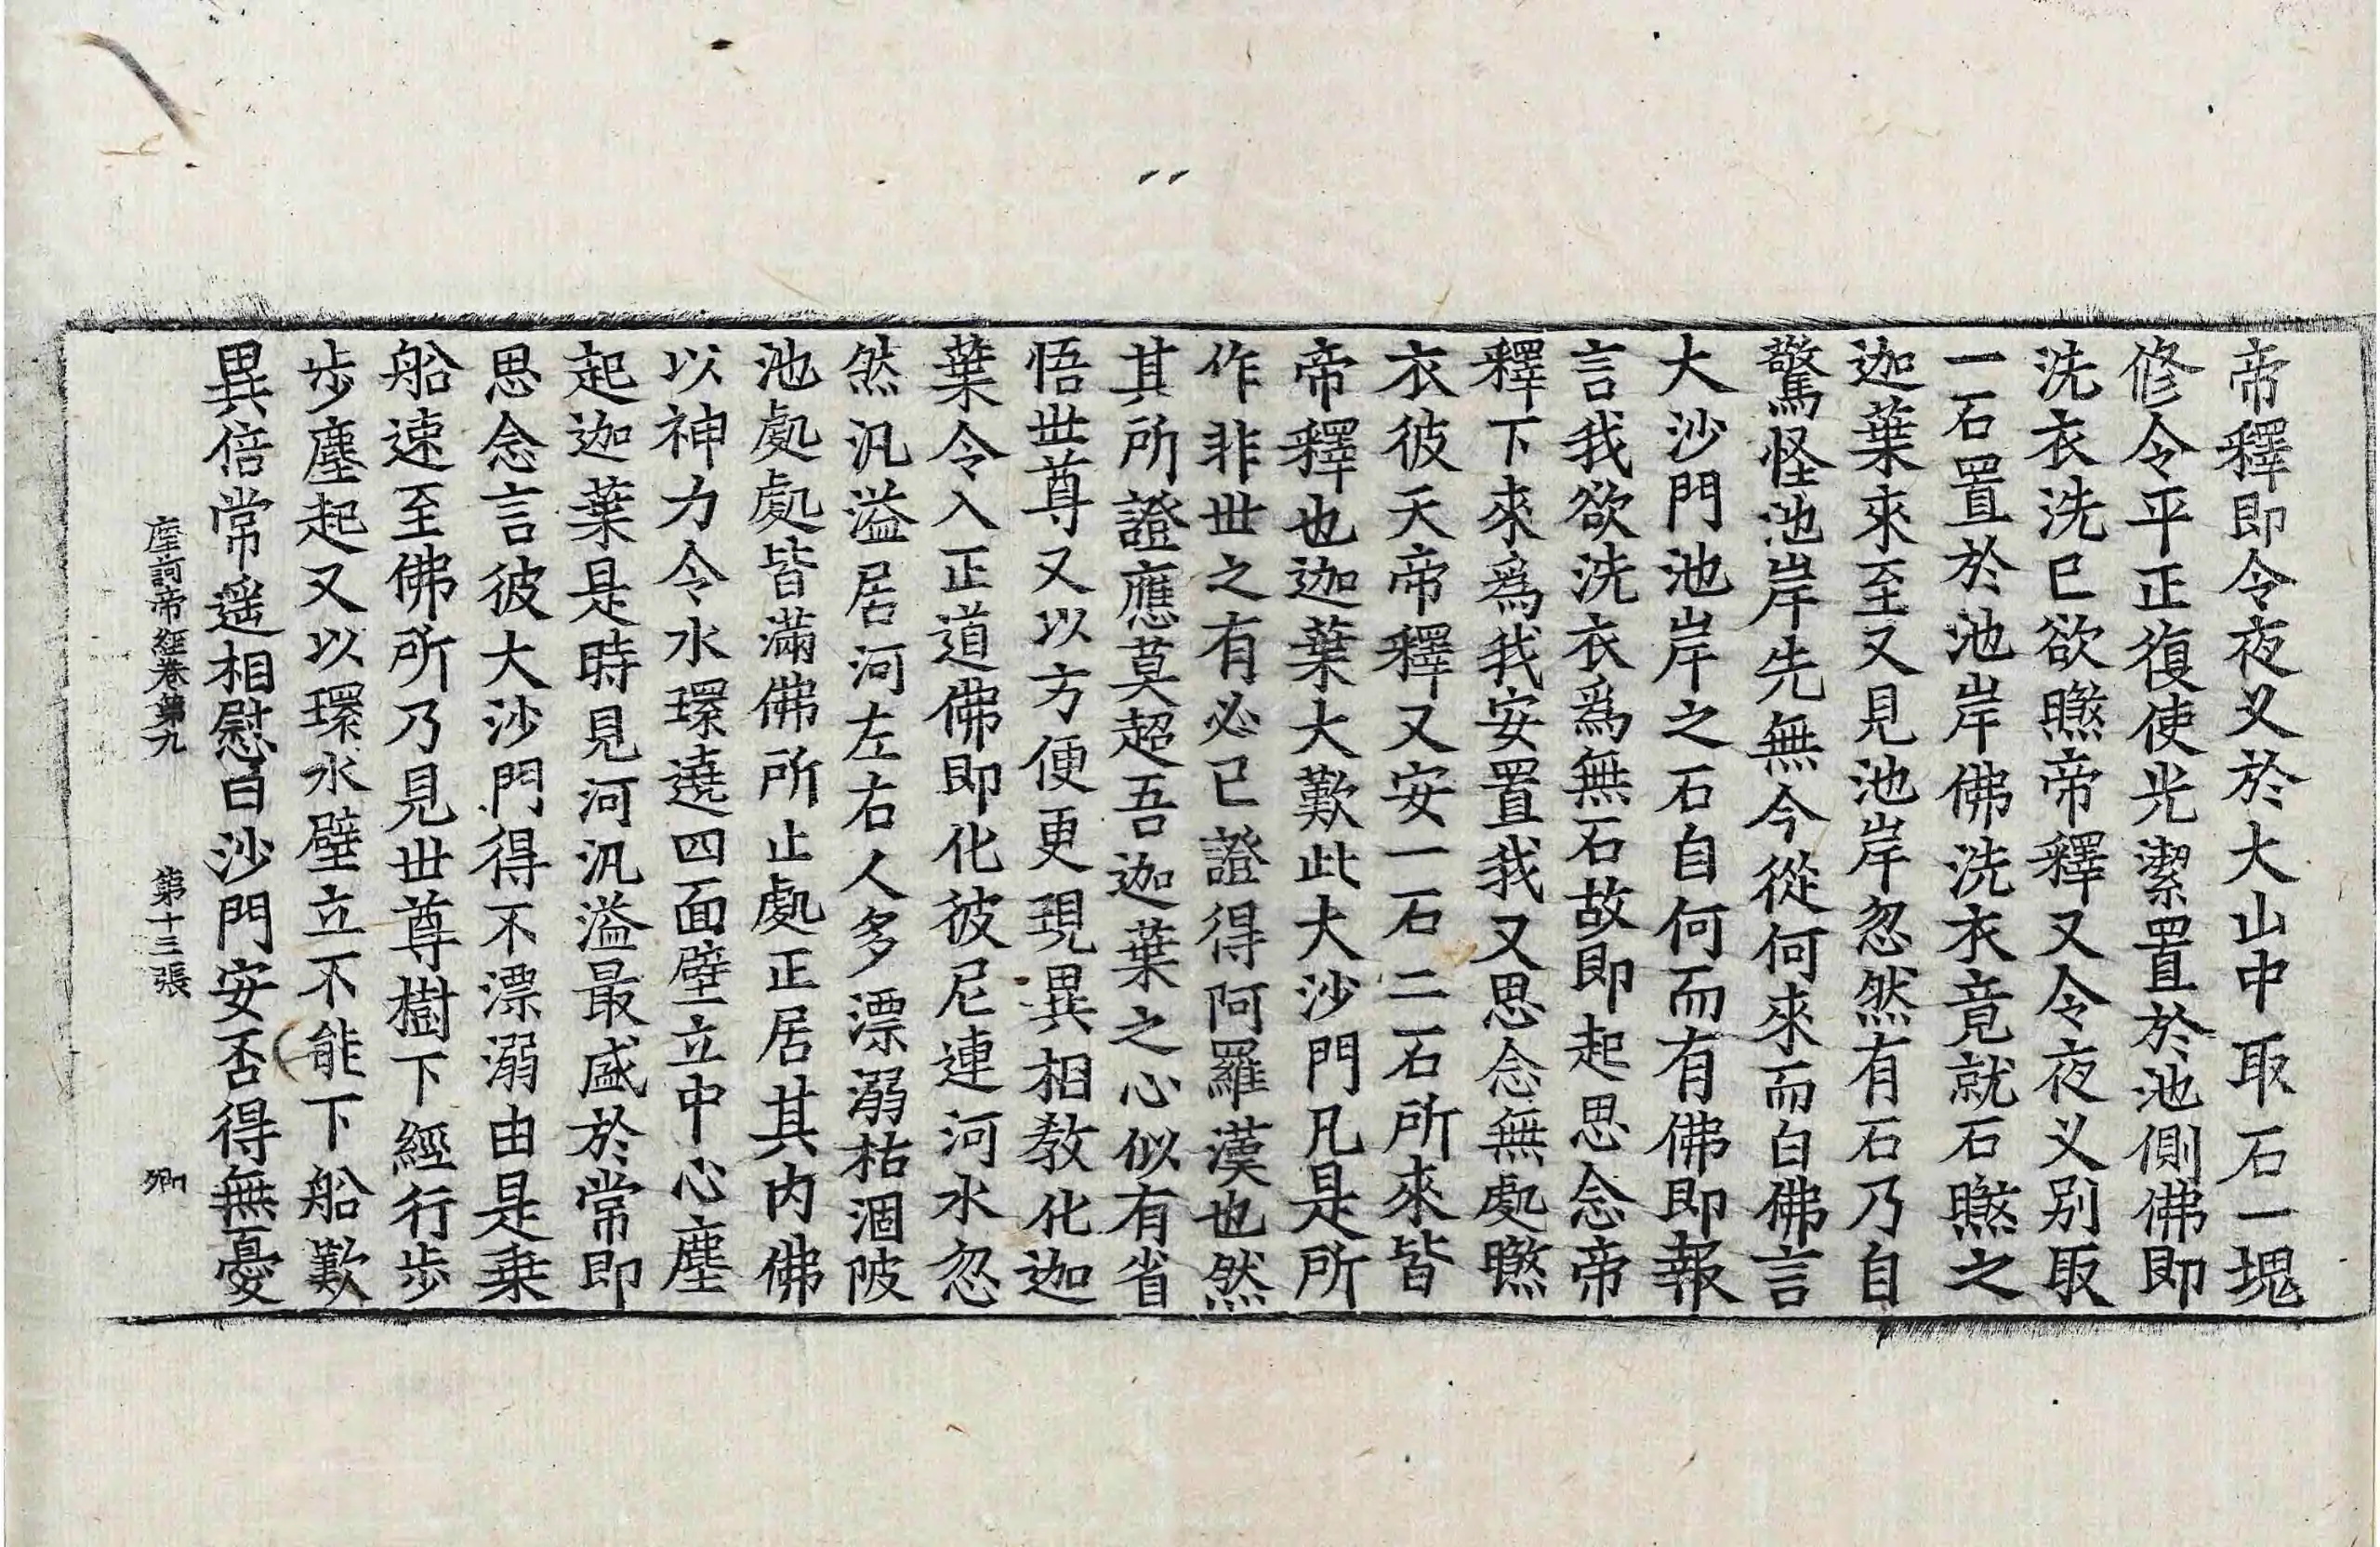 帝釋即令夜义於大山中取石一塊
修令平正復使光潔置於池側佛即
洗衣洗已欲㬠帝釋又令夜义别取
一石置於池岸佛洗衣竟就石㬠之
迦葉來至又見池岸忽然有石乃自
驚怪池岸先無今從何來而白佛言
大沙門池岸之石自何而有佛即報
言我欲洗衣爲無石故即起思念帝
釋下來爲我安置我又思念無處㬠
衣彼天帝釋又安一石二石所來皆
帝釋也迦葉大歎此大沙門凡是所
作非世之有必已證得阿羅漢也然
其所證應莫超吾迦葉之心似有省
悟世尊又以方便更現異相敎化迦
葉令入正道佛即化彼尼連河水忽
然汎溢居河左右人多漂溺枯涸陂
池處處皆滿佛所止處正居其內佛
以神力令水環遶四面壁立中心塵
起迦葉是時見河汎溢最盛於常即
思念言彼大沙門得不漂溺由是乗
船速至佛所乃見世尊樹下經行步
步塵起又以環水壁立不能下船歎
異倍常遥相慰白沙門安否得無憂
摩訶帝經卷第九 第十三張 卿